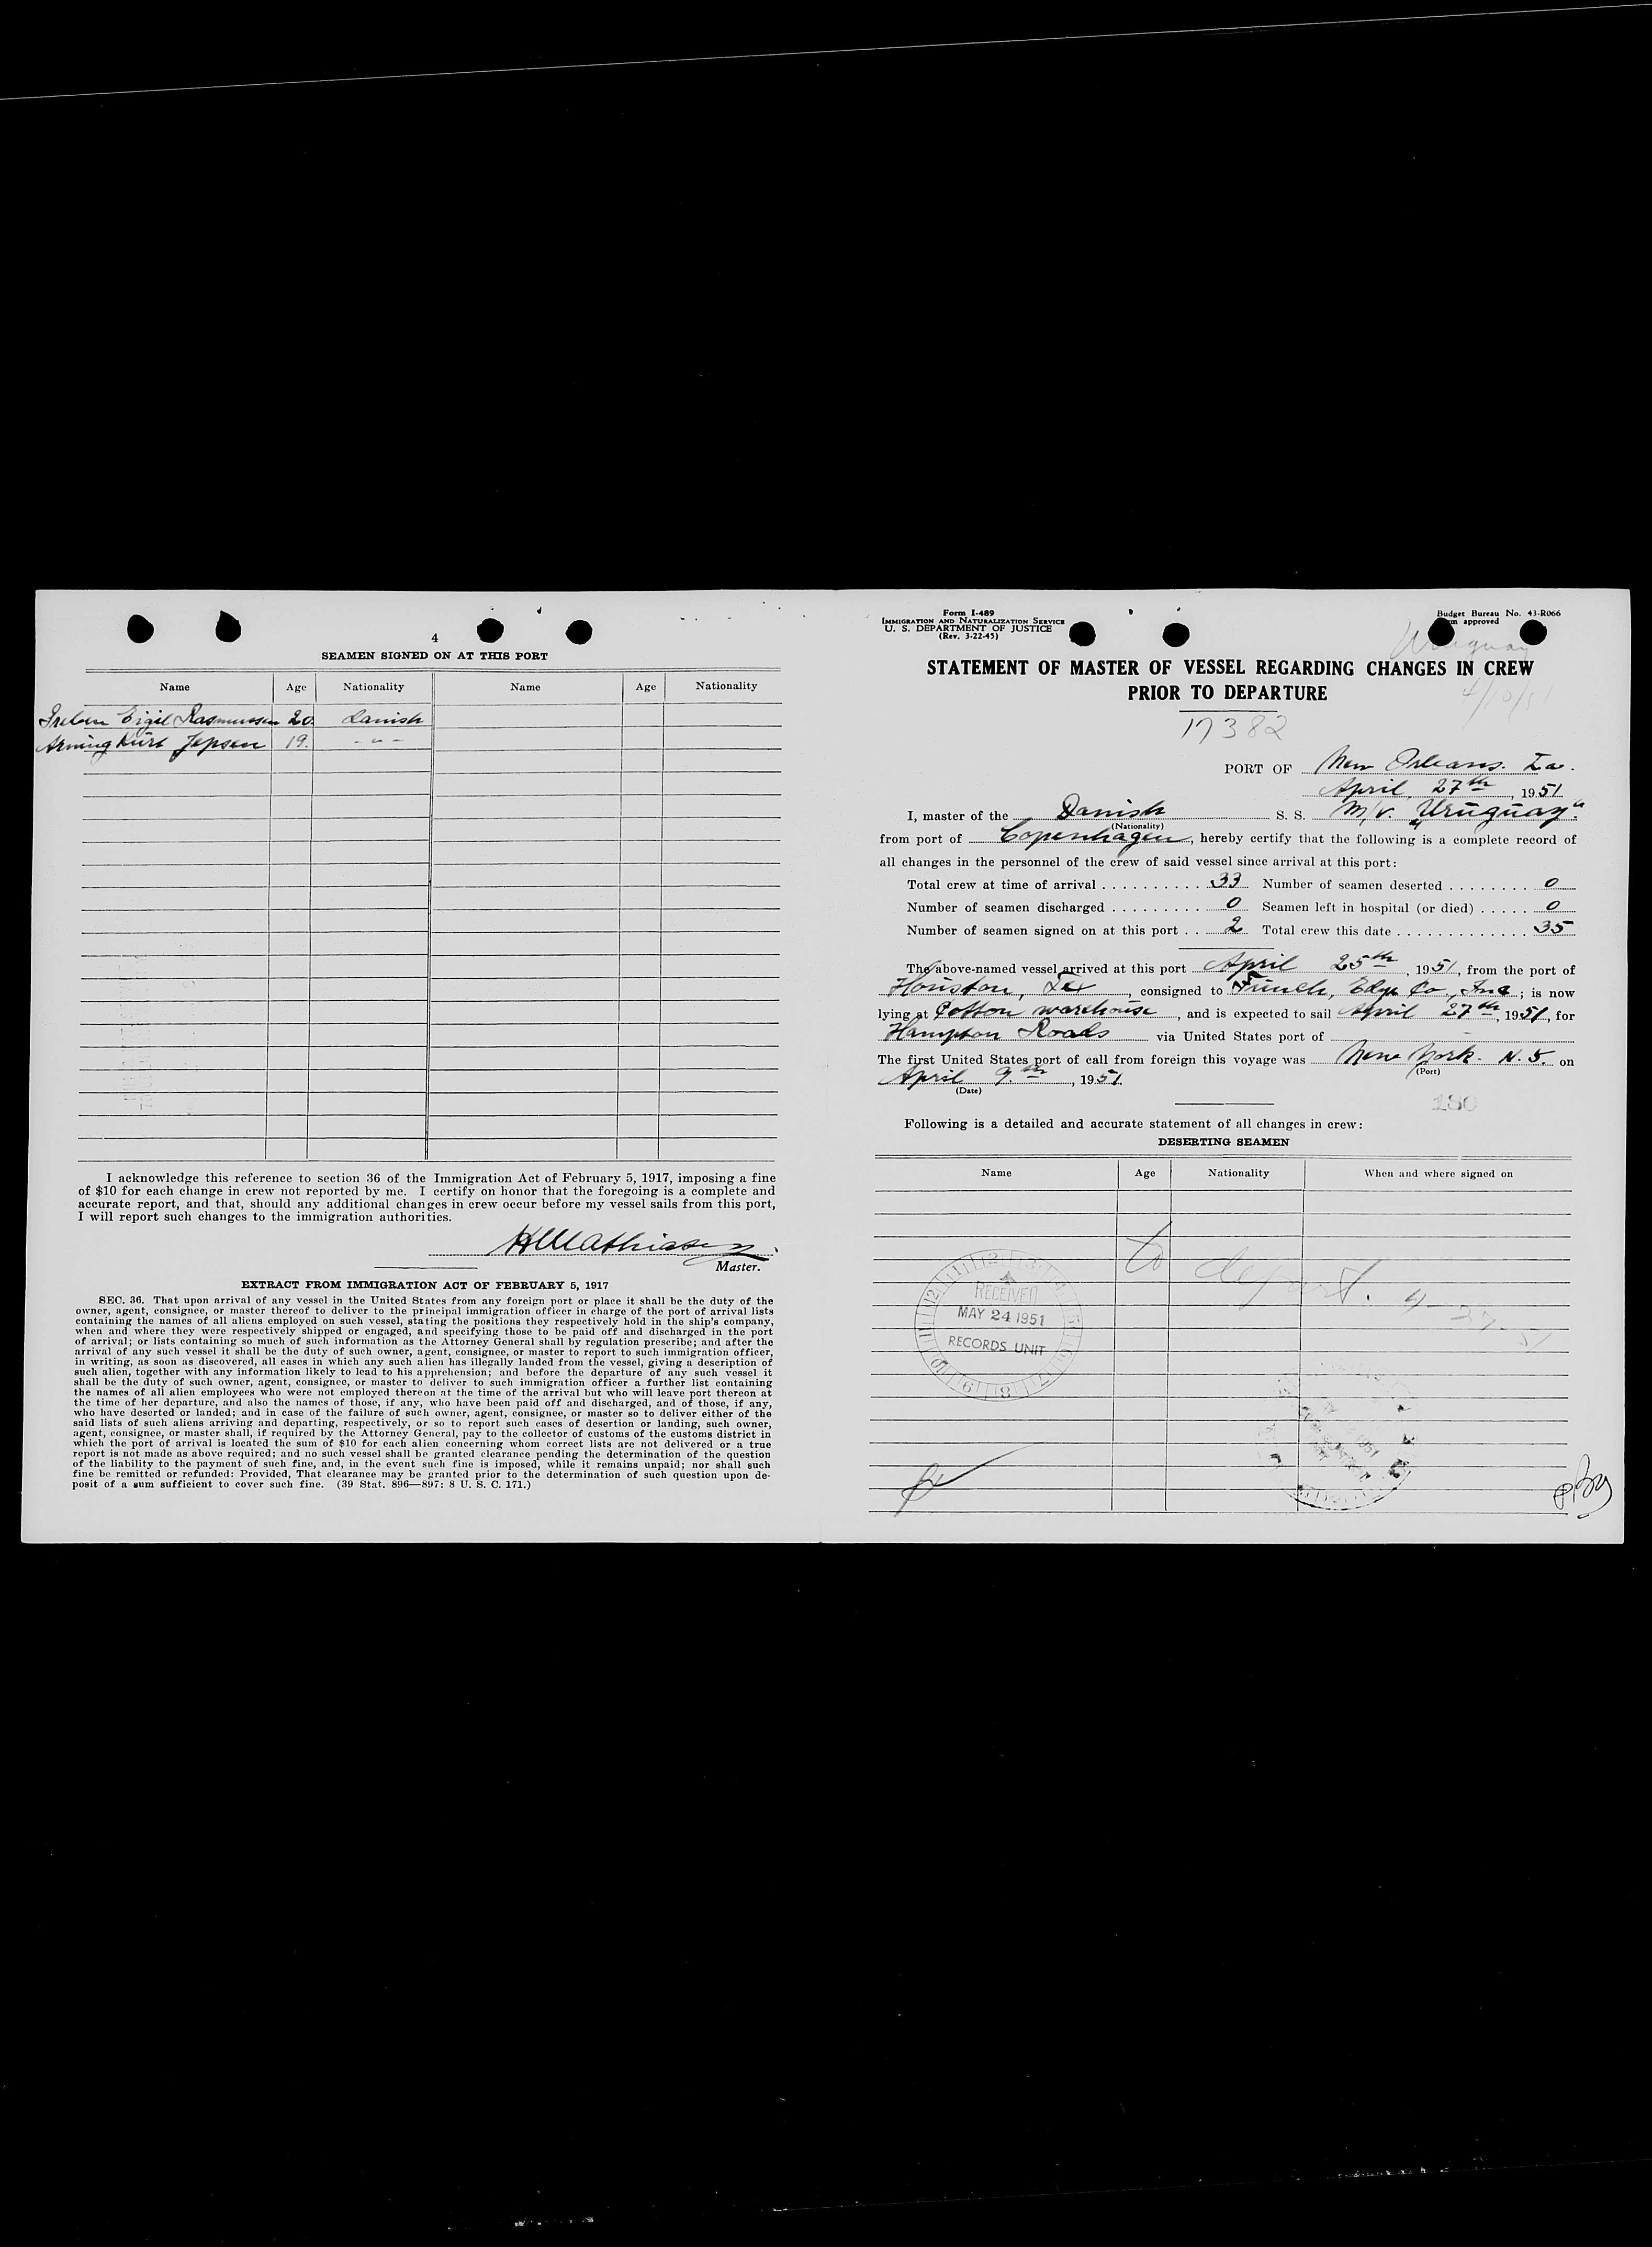 4
SEAMEN SIGNED ON AT THIS PORT
Name Age Nationality Name Age Nationality
Eigil Rasmussen 20. Danish
Kurt Jepsen 19. - " -
I acknowledge this reference to section 36 of the Immigration Act of February 5, 1917, imposing a fine
of $10 for each change in crew not reported by me. I certify on honor that the foregoing is a complete and
accurate report, and that, should any additional changes in crew occur before my vessel sails from this port,
I will report such changes to the immigration authorities.
Master.
EXTRACT FROM IMMIGRATION ACT OF FEBRUARY 5, 1917
SEC. 36. That upon arrival of any vessel in the United States from any foreign port or place it shall be the duty of the
owner, agent, consignee, or master thereof to deliver to the principal immigration officer in charge of the port of arrival lists
containing the names of all aliens employed on such vessel, stating the positions they respectively hold in the ship's company,
when and where they were respectively shipped or engaged, and specifying those to be paid off and discharged in the port
of arrival; or lists containing so much of such information as the Attorney General shall by regulation prescribe; and after the
arrival of any such vessel it shall be the duty of such owner, agent, consignee, or master to report to such immigration officer,
in writing, as soon as discovered, all cases in which any such alien has illegally landed from the vessel, giving a description of
such alien, together with any information likely to lead to his apprehension; and before the departure of any such vessel it
shall be the duty of such owner, agent, consignee, or master to deliver to such immigration officer a further list containing
the names of all alien employees who were not employed thereon at the time of the arrival but who will leave port thereon at
the time of her departure, and also the names of those, if any, who have been paid off and discharged, and of those, if any,
who have deserted or landed; and in case of the failure of such owner, agent, consignee, or master so to deliver either of the
said lists of such aliens arriving and departing, respectively, or so to report such cases of desertion or landing, such owner,
agent, consignee, or master shall, if required by the Attorney General, pay to the collector of customs of the customs district in
which the port of arrival is located the sum of $10 for each alien concerning whom correct lists are not delivered or a true
report is not made as above required; and no such vessel shall be granted clearance pending the determination of the question
of the liability to the payment of such fine, and, in the event such fine is imposed, while it remains unpaid; nor shall such
fine be remitted or refunded: Provided, That clearance may be granted prior to the determination of such question upon de-
posit of a sum sufficient to cover such fine. (39 Stat. 896—897: 8 U. S. C. 171.)
Form I-489
IMMIGRATION AND NATURALIZATION SERVICE
U. S. DEPARTMENT OF JUSTICE
(Rev. 3-22-45)
Budget Bureau No. 43-R066
approved
Uruguay
4/10/51
STATEMENT OF MASTER OF VESSEL REGARDING CHANGES IN CREW
PRIOR TO DEPARTURE
17382
PORT OF New Orleans. La.
April 27th, 1951
I, master of the Danish S. S. M/V. "Uruguay"
(Nationality)
from port of Copenhagen, hereby certify that the following is a complete record of
all changes in the personnel of the crew of said vessel since arrival at this port:
Total crew at time of arrival . . . . . . . . . . 33 Number of seamen deserted . . . . . . . . 0
Number of seamen discharged . . . . . . . . . 0 Seamen left in hospital (or died) . . . . . 0
Number of seamen signed on at this port . . 2 Total crew this date . . . . . . . . . . . . . 35
The above-named vessel arrived at this port April 25th, 1951, from the port of
Houston, Tex, consigned to Funch, Edye Co., Inc; is now
lying at Cotton warehouse, and is expected to sail April 27th, 1951, for
Hampton Roads via United States port of
The first United States port of call from foreign this voyage was New York. N.Y. on
(Port)
April 9.th, 1951
(Date)
180
Following is a detailed and accurate statement of all changes in crew:
DESERTING SEAMEN
Name Age Nationality When and where signed on
to depart. 4-27-51
RECEIVED
MAY 24 1951
RECORDS UNIT